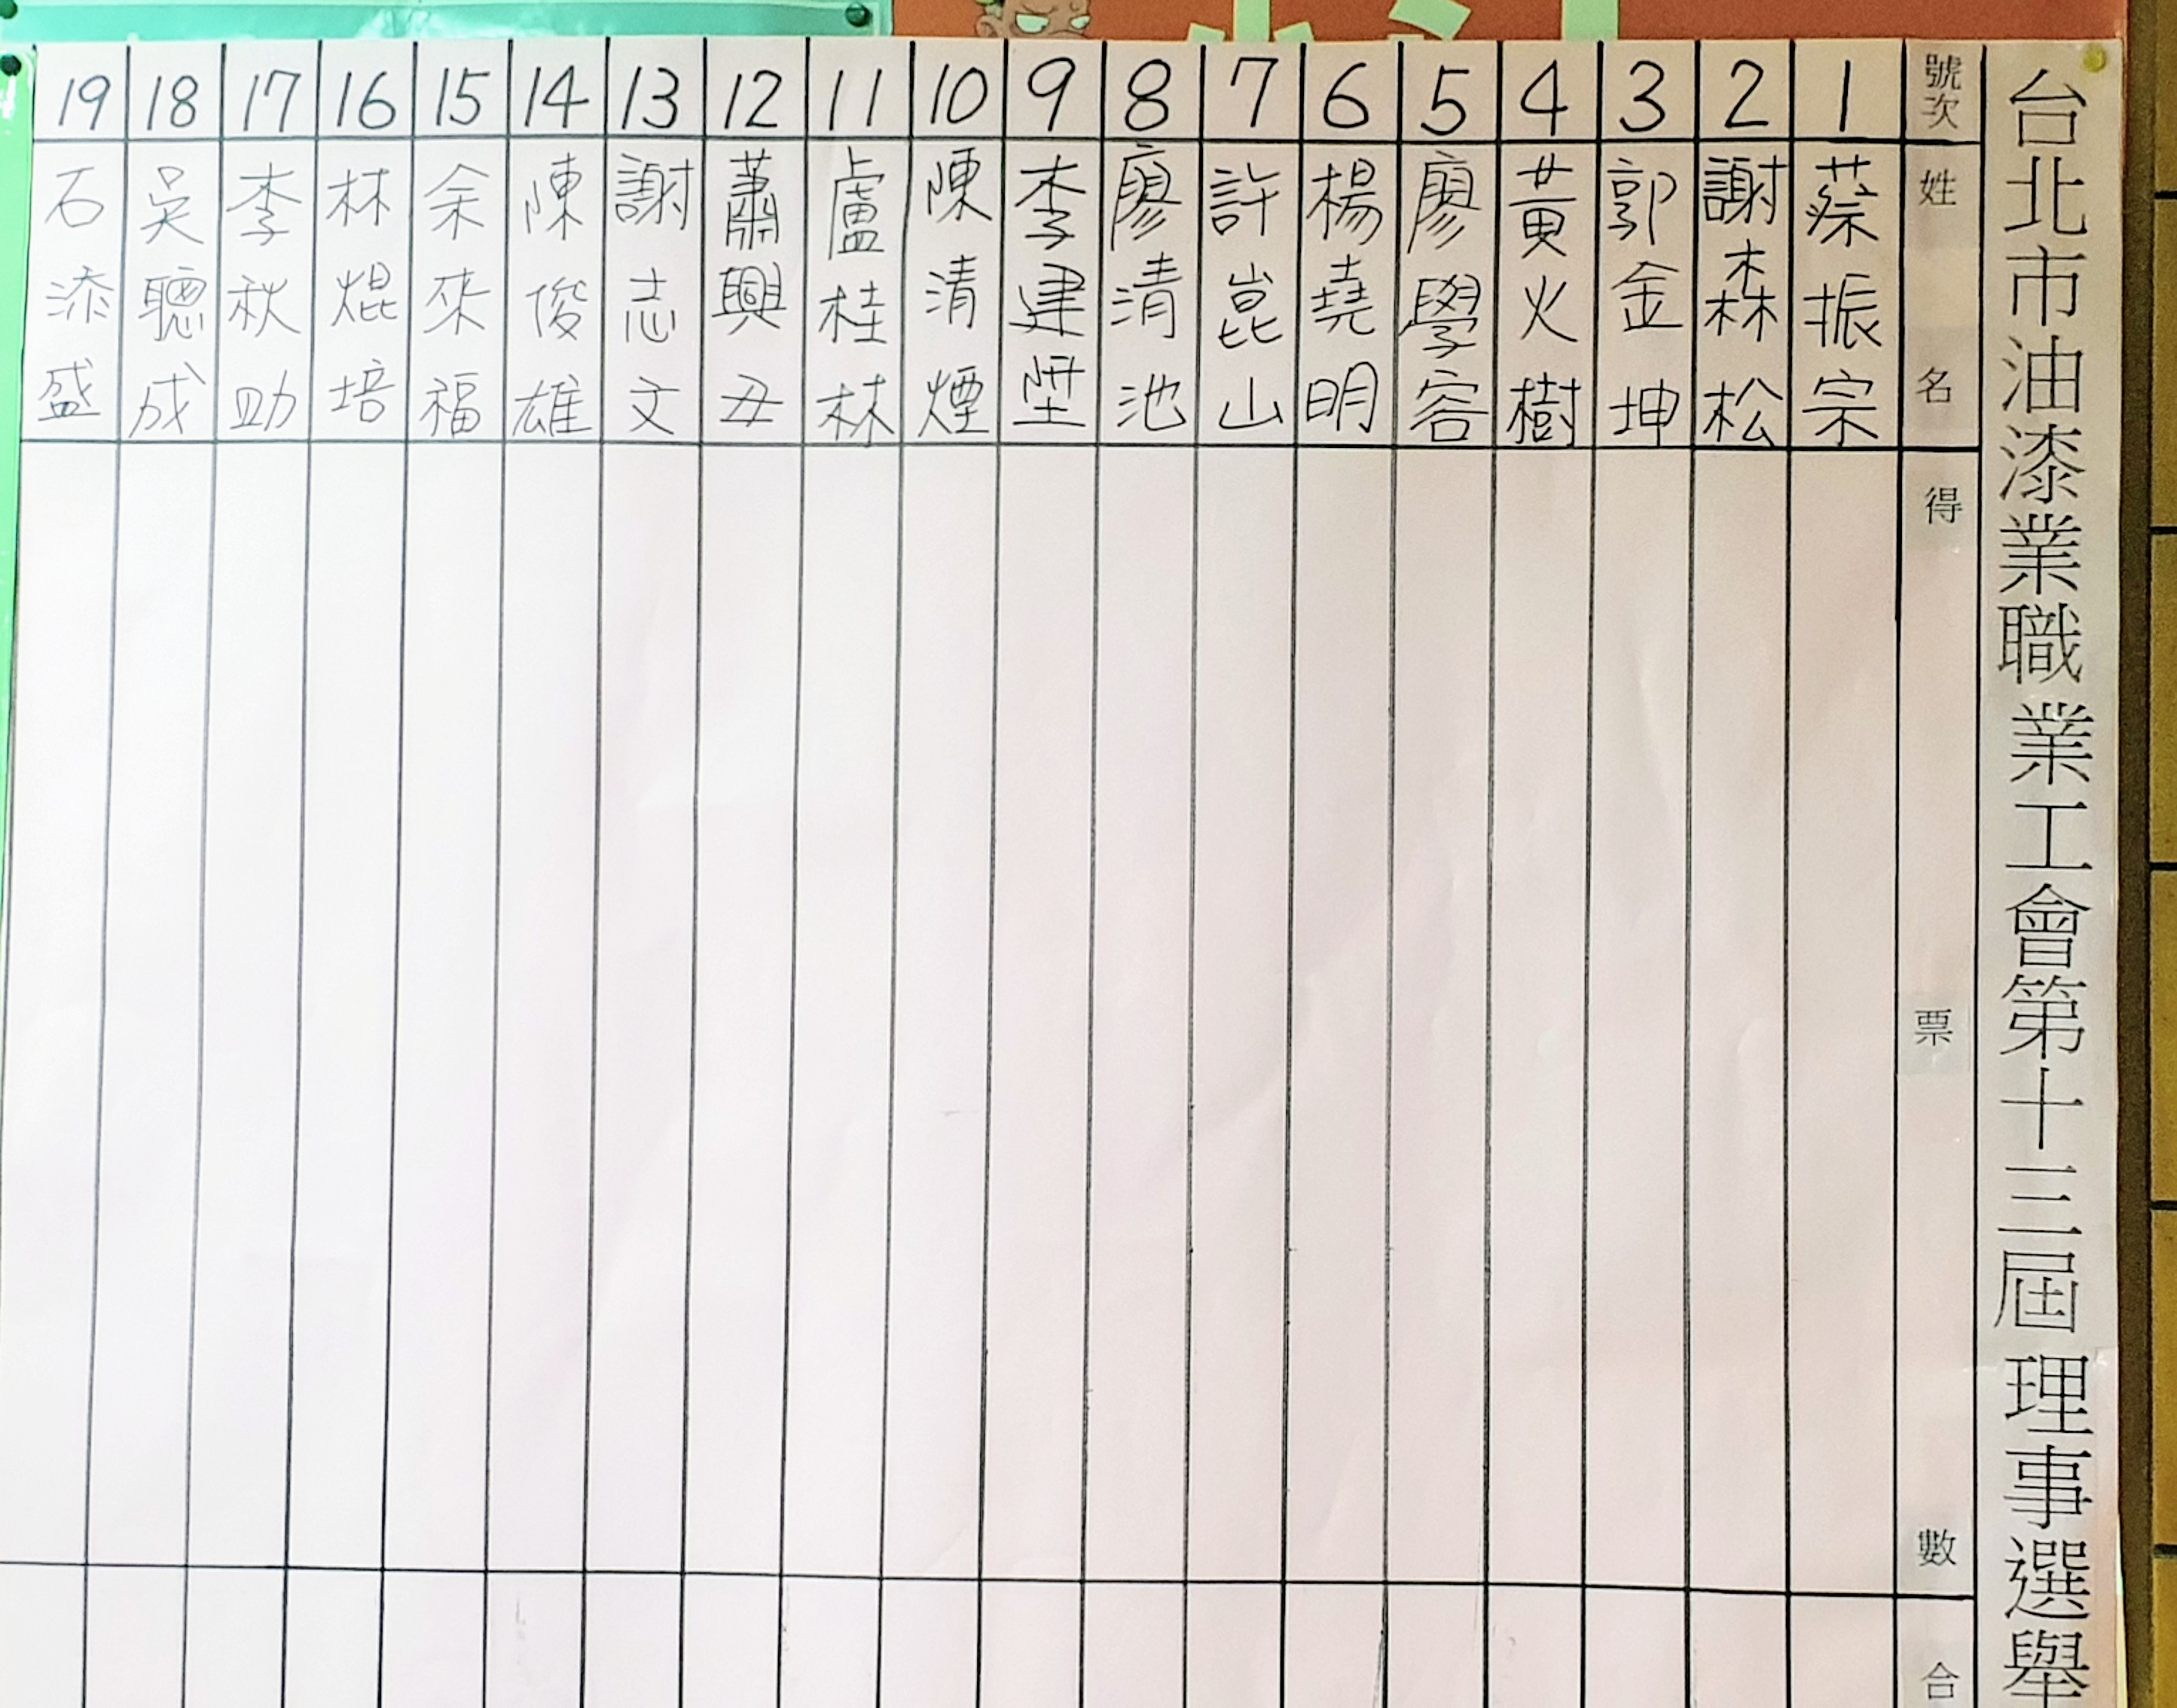 台北市油漆業職業工會第十三屆理事選舉
號次 姓名 得票數 合
1 蔡振宗
2 謝森松
3 郭金坤
4 黃火樹
5 廖學容
6 楊堯明
7 許崑山
8 廖清池
9 李建陞
10 陳清煙
11 盧桂林
12 蕭興丑
13 謝志文
14 陳俊雄
15 余來福
16 林焜培
17 李秋助
18 吳聰成
19 石添盛